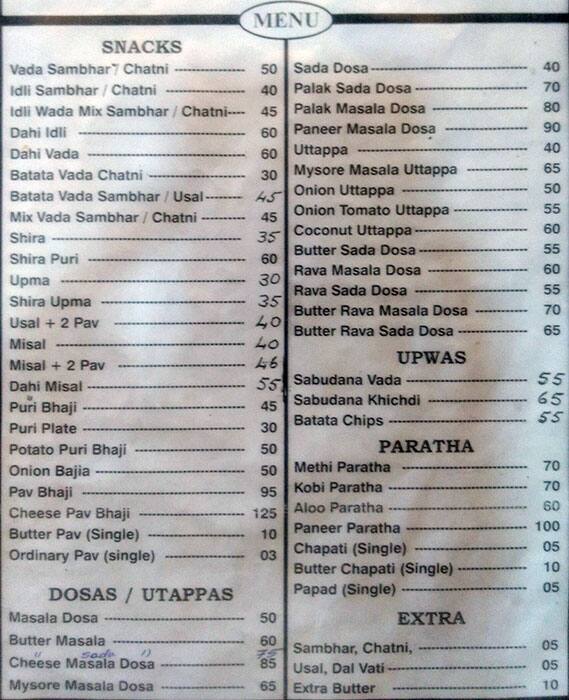 MENU
SNACKS
Vada Sambhar / Chatni 50
Idli Sambhar / Chatni 40
Idli Wada Mix Sambhar / Chatni 45
Dahi Idli 60
Dahi Vada 60
Batata Vada Chatni 30
Batata Vada Sambhar / Usal 45
Mix Vada Sambhar / Chatni 45
Shira 35
Shira Puri 60
Upma 30
Shira Upma 35
Usal + 2 Pav 40
Misal 40
Misal + 2 Pav 46
Dahi Misal 55
Puri Bhaji 45
Puri Plate 30
Potato Puri Bhaji 50
Onion Bajia 50
Pav Bhaji 95
Cheese Pav Bhaji 125
Butter Pav (Single) 10
Ordinary Pav (single) 03
DOSAS / UTAPPAS
Masala Dosa 50
Butter Masala 60
" sada " 75
Cheese Masala Dosa 85
Mysore Masala Dosa 65
Sada Dosa 40
Palak Sada Dosa 70
Palak Masala Dosa 80
Paneer Masala Dosa 90
Uttappa 40
Mysore Masala Uttappa 65
Onion Uttappa 50
Onion Tomato Uttappa 55
Coconut Uttappa 60
Butter Sada Dosa 55
Rava Masala Dosa 60
Rava Sada Dosa 55
Butter Rava Masala Dosa 70
Butter Rava Sada Dosa 65
UPWAS
Sabudana Vada 55
Sabudana Khichdi 65
Batata Chips 55
PARATHA
Methi Paratha 70
Kobi Paratha 70
Aloo Paratha 60
Paneer Paratha 100
Chapati (Single) 05
Butter Chapati (Single) 10
Papad (Single) 05
EXTRA
Sambhar, Chatni, 05
Usal, Dal Vati 05
Extra Butter 10